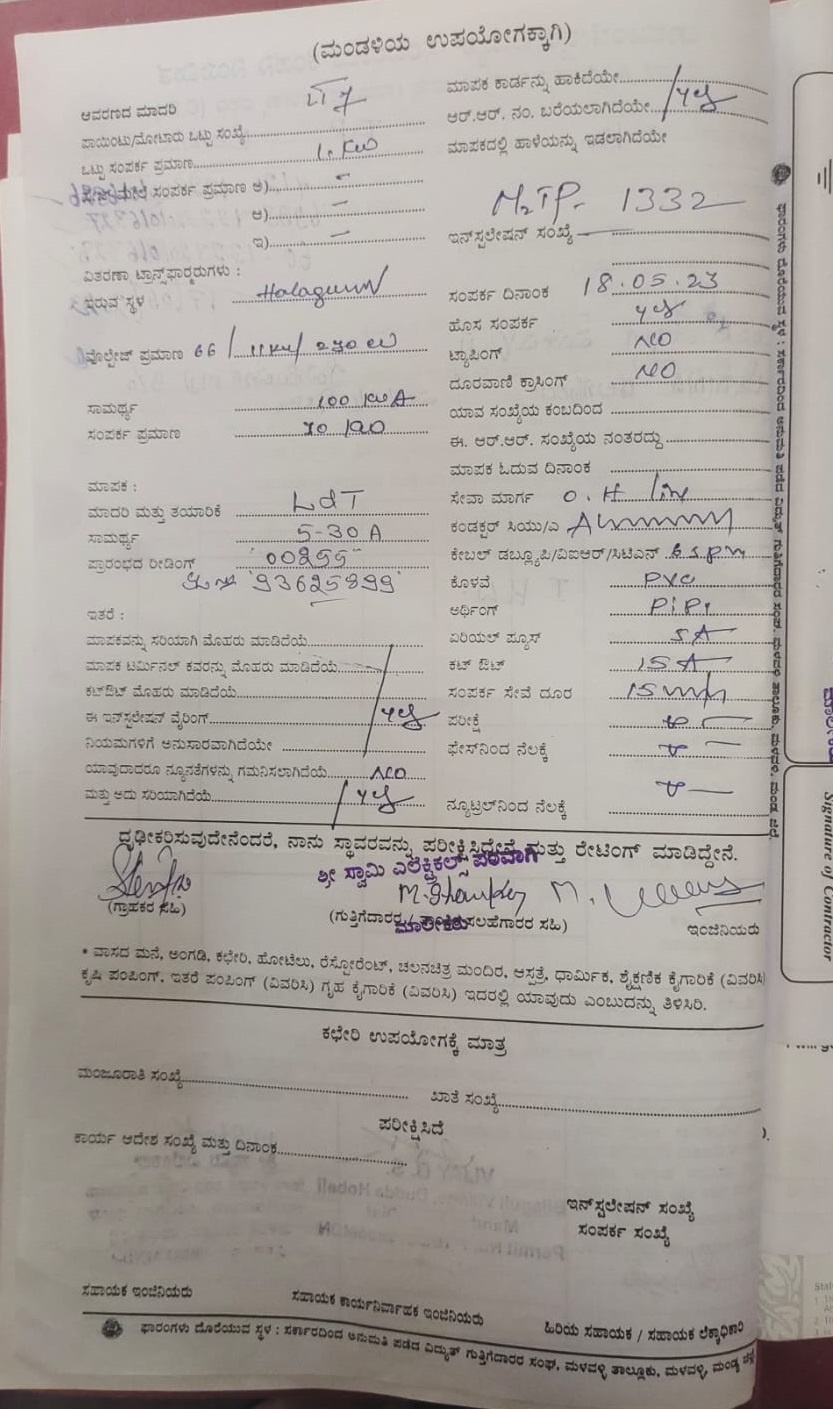 (ಮಂಡಳಿಯ ಉಪಯೋಗಕ್ಕಾಗಿ)
ಆವರಣದ ಮಾದರಿ LT 7
ಪಾಯಿಂಟು/ಮೋಟಾರು ಒಟ್ಟು ಸಂಖ್ಯೆ
ಒಟ್ಟು ಸಂಪರ್ಕ ಪ್ರಮಾಣ 1. KW
ಸಂಪರ್ಕ ಪ್ರಮಾಣ ಅ) –
ಆ) –
ಇ) –
ವಿತರಣಾ ಟ್ರಾನ್ಸ್‌ಫಾರ್ಮರುಗಳು :
ಇರುವ ಸ್ಥಳ Halaguru
ವೊಲ್ಟೇಜ್ ಪ್ರಮಾಣ 66 / 11 KV/ 250
ಸಾಮರ್ಥ್ಯ 100 KVA
ಸಂಪರ್ಕ ಪ್ರಮಾಣ
ಮಾಪಕ :
ಮಾದರಿ ಮತ್ತು ತಯಾರಿಕೆ L&T
ಸಾಮರ್ಥ್ಯ 5-30 A
ಪ್ರಾರಂಭದ ರೀಡಿಂಗ್ 00255
SL No 93625899
ಇತರೆ :
ಮಾಪಕವನ್ನು ಸರಿಯಾಗಿ ಮೊಹರು ಮಾಡಿದೆಯೆ
ಮಾಪಕ ಟರ್ಮಿನಲ್ ಕವರನ್ನು ಮೊಹರು ಮಾಡಿದೆಯೆ
ಕಟ್‌ಔಟ್ ಮೊಹರು ಮಾಡಿದೆಯೆ
ಈ ಇನ್‌ಸ್ಟಲೇಷನ್ ವೈರಿಂಗ್ yes
ನಿಯಮಗಳಿಗೆ ಅನುಸಾರವಾಗಿದೆಯೇ
ಯಾವುದಾದರೂ ನ್ಯೂನತೆಗಳನ್ನು ಗಮನಿಸಲಾಗಿದೆಯೆ NO
ಮತ್ತು ಅದು ಸರಿಯಾಗಿದೆಯೆ yes
ಮಾಪಕ ಕಾರ್ಡನ್ನು ಹಾಕಿದೆಯೇ
ಆರ್.ಆರ್. ನಂ. ಬರೆಯಲಾಗಿದೆಯೇ yes
ಮಾಪಕದಲ್ಲಿ ಹಾಳೆಯನ್ನು ಇಡಲಾಗಿದೆಯೇ
M2TP- 1332
ಇನ್‌ಸ್ಟಲೇಷನ್ ಸಂಖ್ಯೆ
ಸಂಪರ್ಕ ದಿನಾಂಕ 18.05.23
ಹೊಸ ಸಂಪರ್ಕ yes
ಟ್ಯಾಪಿಂಗ್ NO
ದೂರವಾಣಿ ಕ್ರಾಸಿಂಗ್ NO
ಯಾವ ಸಂಖ್ಯೆಯ ಕಂಬದಿಂದ
ಈ. ಆರ್.ಆರ್. ಸಂಖ್ಯೆಯ ನಂತರದ್ದು
ಮಾಪಕ ಓದುವ ದಿನಾಂಕ
ಸೇವಾ ಮಾರ್ಗ O. H line
ಕಂಡಕ್ಟರ್ ಸಿಯು/ಎ
ಕೇಬಲ್ ಡಬ್ಲ್ಯೂಪಿ/ವಿಐಆರ್/ಸಿಟಿಎಸ್
ಕೊಳವೆ PVC
ಅರ್ಥಿಂಗ್ PiPe
ಏರಿಯಲ್ ಫ್ಯೂಸ್ 5A
ಕಟ್ ಔಟ್ 15 A
ಸಂಪರ್ಕ ಸೇವೆ ದೂರ 15 mtr
ಪರೀಕ್ಷೆ
ಫೇಸ್‌ನಿಂದ ನೆಲಕ್ಕೆ
ನ್ಯೂಟ್ರಲ್‌ನಿಂದ ನೆಲಕ್ಕೆ
ದೃಢೀಕರಿಸುವುದೇನೆಂದರೆ, ನಾನು ಸ್ಥಾವರವನ್ನು ಪರೀಕ್ಷಿಸಿದ್ದೇನೆ ಮತ್ತು ರೇಟಿಂಗ್ ಮಾಡಿದ್ದೇನೆ.
ಶ್ರೀ ಸ್ವಾಮಿ ಎಲೆಕ್ಟ್ರಿಕಲ್ಸ್ ಪರವಾಗಿ
(ಗ್ರಾಹಕರ ಸಹಿ) (ಗುತ್ತಿಗೆದಾರರ / ಸಲಹೆಗಾರರ ಸಹಿ) ಇಂಜಿನಿಯರು
ಮಾಲೀಕರು
* ವಾಸದ ಮನೆ, ಅಂಗಡಿ, ಕಛೇರಿ, ಹೋಟೆಲು, ರೆಸ್ಟೋರೆಂಟ್, ಚಲನಚಿತ್ರ ಮಂದಿರ, ಆಸ್ಪತ್ರೆ, ಧಾರ್ಮಿಕ, ಶೈಕ್ಷಣಿಕ ಕೈಗಾರಿಕೆ (ವಿವರಿಸಿ)
ಕೃಷಿ ಪಂಪಿಂಗ್, ಇತರೆ ಪಂಪಿಂಗ್ (ವಿವರಿಸಿ) ಗೃಹ ಕೈಗಾರಿಕೆ (ವಿವರಿಸಿ) ಇದರಲ್ಲಿ ಯಾವುದು ಎಂಬುದನ್ನು ತಿಳಿಸಿರಿ.
ಕಛೇರಿ ಉಪಯೋಗಕ್ಕೆ ಮಾತ್ರ
ಮಂಜೂರಾತಿ ಸಂಖ್ಯೆ ಖಾತೆ ಸಂಖ್ಯೆ
ಪರೀಕ್ಷಿಸಿದೆ
ಕಾರ್ಯ ಆದೇಶ ಸಂಖ್ಯೆ ಮತ್ತು ದಿನಾಂಕ
ಇನ್‌ಸ್ಟಲೇಷನ್ ಸಂಖ್ಯೆ
ಸಂಪರ್ಕ ಸಂಖ್ಯೆ
ಸಹಾಯಕ ಇಂಜಿನಿಯರು ಸಹಾಯಕ ಕಾರ್ಯನಿರ್ವಾಹಕ ಇಂಜಿನಿಯರು ಹಿರಿಯ ಸಹಾಯಕ / ಸಹಾಯಕ ಲೆಕ್ಕಾಧಿಕಾರಿ
ಫಾರಂಗಳು ದೊರೆಯುವ ಸ್ಥಳ : ಸರ್ಕಾರದಿಂದ ಅನುಮತಿ ಪಡೆದ ವಿದ್ಯುತ್ ಗುತ್ತಿಗೆದಾರರ ಸಂಘ, ಮಳವಳ್ಳಿ ತಾಲ್ಲೂಕು, ಮಳವಳ್ಳಿ, ಮಂಡ್ಯ ಜಿಲ್ಲೆ
ಫಾರಂಗಳು ದೊರೆಯುವ ಸ್ಥಳ : ಸರ್ಕಾರದಿಂದ ಅನುಮತಿ ಪಡೆದ ವಿದ್ಯುತ್ ಗುತ್ತಿಗೆದಾರರ ಸಂಘ, ಮಳವಳ್ಳಿ ತಾಲ್ಲೂಕು, ಮಳವಳ್ಳಿ, ಮಂಡ್ಯ ಜಿಲ್ಲೆ.
Signature of Contractor